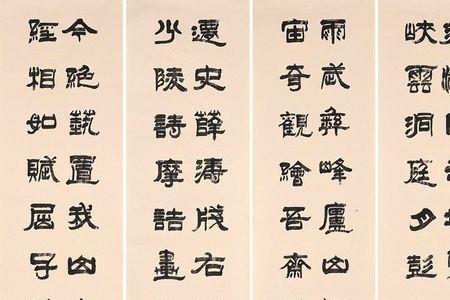 峽雲洞庭月彭
雨武彝峰廬山
宙奇觀繪吾齋
遷史薛濤牋右
少陵詩摩詰畫
今絕藝置我山
經相如賦屈子